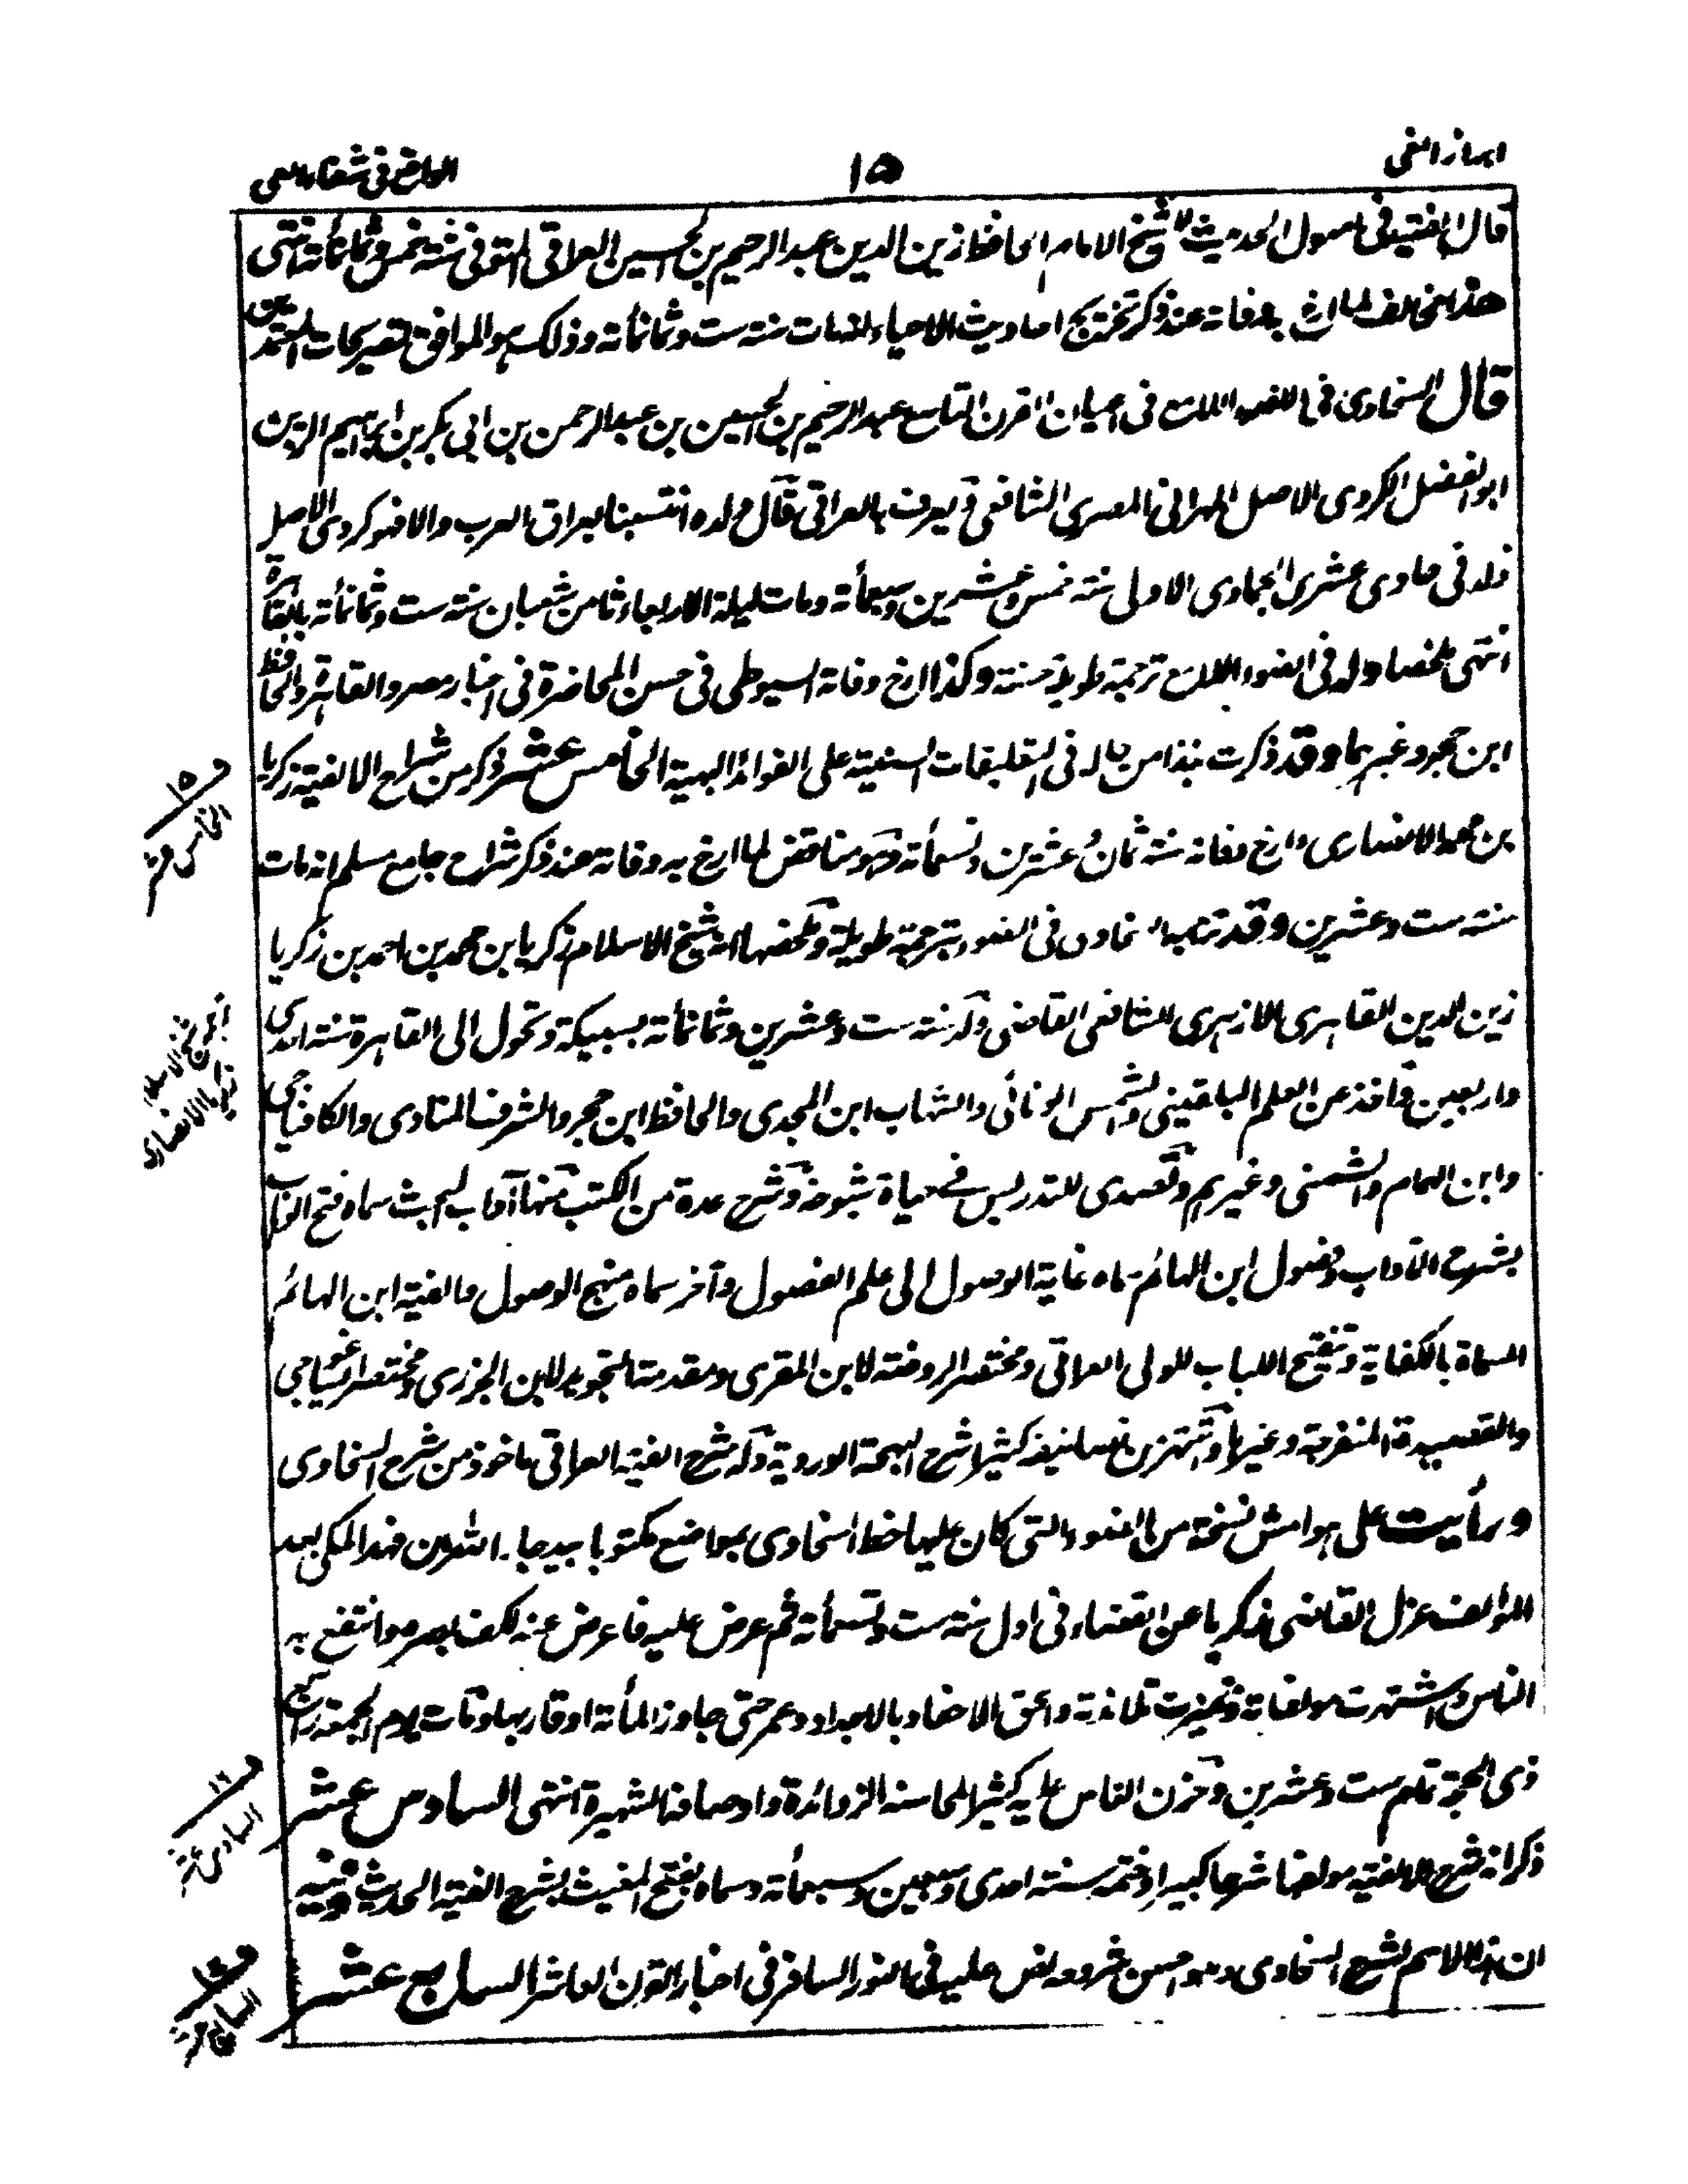 ابراز الغى
١٥
الواقع فى شفاء العى
قال الفية فى اصول الحديث للشيخ الامام الحافظ زين الدين عبد الرحيم بن الحسين العراقى المتوفى سنة خمس وثمانمأته انتهى
هذا مخالف لما ارخ به وفاته عند ذكر تخريج احاديث الاحياء انه مات سنة ست وثمانمأته وذلك هو الموافق لتصريحات المعتمدين
قال السخاوى فى الضوء اللامع فى اعيان القرن التاسع عبد الرحيم بن الحسين بن عبد الرحمن بن ابى بكر بن ابراهيم الزين
ابو الفضل الكردى الاصل المهرانى المصرى الشافعى ويعرف بالعراقى قال ولده انتسبنا لعراق العرب والا فهو كردى الاصل
ولد فى حادى عشرى الجمادى الاولى سنة خمس وعشرين وسبعمأته ومات ليلة الاربعاء ثامن شعبان سنة ست وثمانمأته بالقاهرة
انتهى ملخصا وله فى الضوء اللامع ترجمة طويلة حسنة وكذا ارخ وفاته السيوطى فى حسن المحاضرة فى اخبار مصر والقاهرة والحافظ
ابن حجر وغيرهما وقد ذكرت نبذا من حاله فى التعليقات السنية على الفوائد البهية الخامس عشر ذكر من شراح الالفية زكريا
بن محمد الانصارى وارخ وفاته سنة ثمان وعشرين وتسعمأته وهو مناقض لما ارخ به وفاته عند ذكر شراح جامع مسلم انه مات
سنة ست وعشرين وقد ترجمه السخاوى فى الضوء بترجمة طويلة وملخصها انه شيخ الاسلام زكريا بن محمد بن احمد بن زكريا
زين الدين القاهرى الازهرى الشافعى القاضى ولد سنة ست وعشرين وثمانمأته بسنيكة وتحول الى القاهرة سنة احدى
واربعين واخذ عن العلم البلقينى والشمس الونائى والشهاب ابن المجدى والحافظ ابن حجر والشرف المناوى والكافياجى
وابن الهمام والشمنى وغيرهم وتصدى للتدريس فى حياة شيوخه وشرح عدة من الكتب منها آداب البحث سماه فتح الوهاب
بشرح الآداب وفصول ابن الهائم سماه غاية الوصول الى علم الفصول وآخر سماه منهج الوصول والفية ابن الهائم
المسماة بالكفاية وتنقيح اللباب للولى العراقى ومختصر الروضة لابن المقرى ومقدمة التجويد لابن الجزرى ومختصر ايساغوجى
والقصيدة المنفرجة وغيرها واشتهر من تصانيفه كثيرا شرح البهجة الوردية وله شرح الفية العراقى ماخوذ من شرح السخاوى
ورأيت على هوامش نسخة من الضوء التى كان عليها خط السخاوى بمواضع مكتوبا بيد جار الله بن فهد المكى بعد
المؤلف عزل القاضى زكريا عن القضاء فى اول سنة ست وتسعمأته ثم عرض عليه فاعرض عنه لكف بصره وانتفع به
الناس واشتهرت مولفاته وتميزت تلامذته والحق الاحفاد بالاجداد وعمر حتى جاوز المأته او قاربها ومات يوم الجمعة رابع
ذى الحجة تمام ست وعشرين وحزن الناس عليه كثيرا لمحاسنه الزائدة واوصافه الشهيرة انتهى السادس عشر
ذكر انه شرح الالفية مولفها شرحا كبيرا وختمه سنة احدى وسبعين وسبعمأته وسماه بفتح المغيث بشرح الفية الحديث وفيه
ان هذا الاسم لشرح السخاوى وهو احسن شروحه نص عليه فى النور السافر فى اخبار القرن العاشر السابع عشر
١٥
الخامس عشر
السادس عشر
السابع عشر